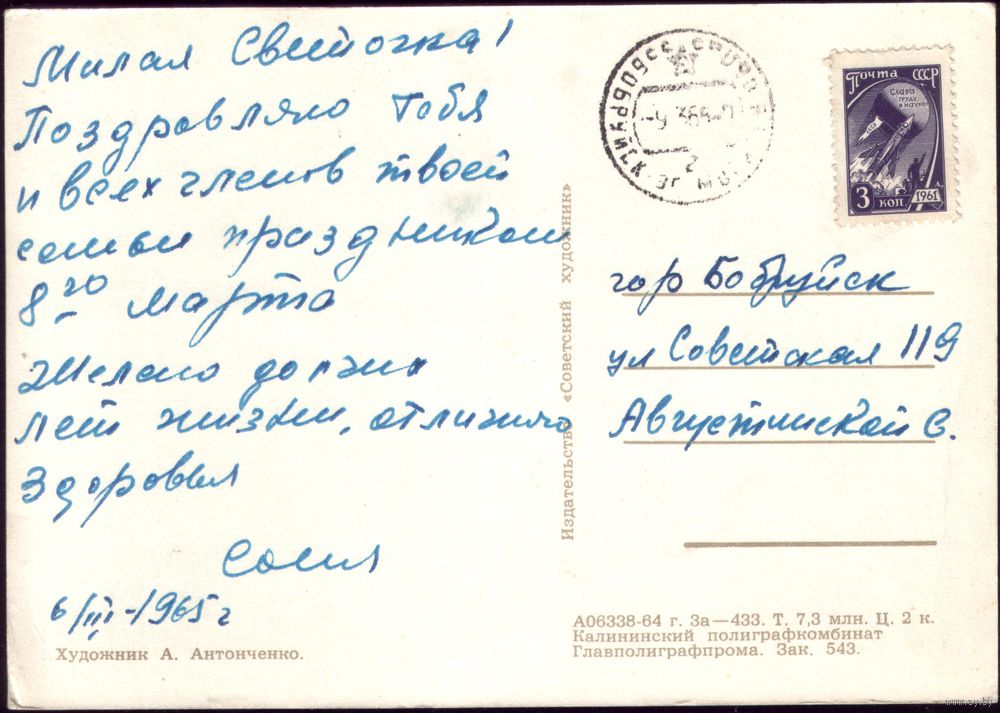 Милая Светочка!
Поздравляю тебя
и всех членов твоей
семьи праздником
8го марта
Желаю долгих
лет жизни, отлично
здоровья
Соня
6/III-1965 г
Художник А. Антонченко.
Издательство «Советский художник»
БОБРУЙСК
Почта СССР
СЛАВА
ТРУДУ
И НАУКЕ
3 КОП
1961
гор Бобруйск
ул Советская 119
Августинской С.
А06338-64 г. За—433. Т. 7,3 млн. Ц. 2 к.
Калининский полиграфкомбинат
Главполиграфпрома. Зак. 543.